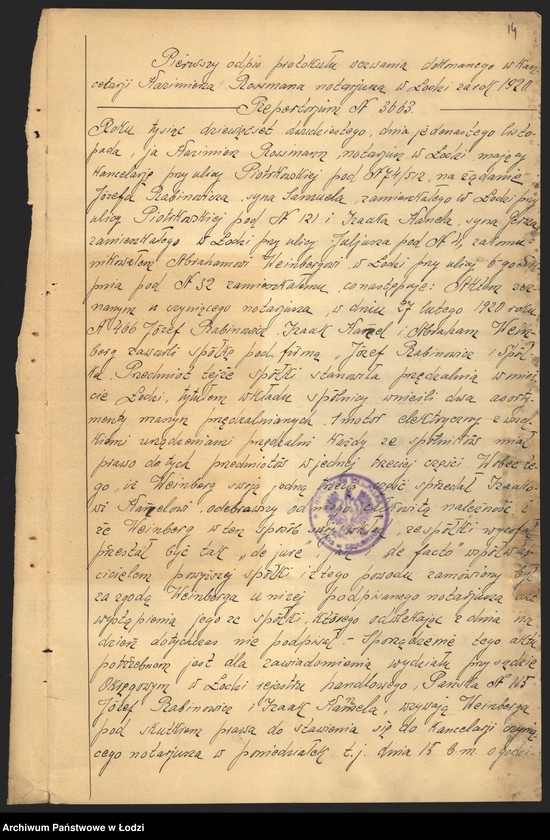 14
Pierwszy odpis protokułu wezwania dokonanego w kan-
celarji Kazimierza Rossmana notarjusza w Łodzi za rok 1920
Repertorjum № 3663.
Roku tysiąc dziewięćset dwudziestego, dnia jedenastego listo-
pada, ja Kazimierz Rossmann, notarjusz w Łodzi mający
kancelarję przy ulicy Piotrkowskiej pod № 74/512, na żądanie
Józefa Rabinowicza, syna Samuela, zamieszkałego w Łodzi przy
ulicy Piotrkowskiej pod № 121 i Izaaka Hamela, syna
zamieszkałego w Łodzi przy ulicy Juljusza pod № 4, zakomu-
nikowałem Abrahamowi Weinbergowi w Łodzi przy ulicy 6-go Sier-
pnia pod № 52 zamieszkałemu, co następuje: Aktem zez-
nanym u czyniącego notarjusza, w dniu 27 lutego 1920 roku
№ 466 Józef Rabinowicz, Izaak Hamel i Abraham Wein-
berg zawarli spółkę pod firmą „Józef Rabinowicz i Spół-
ka". Przedmiot tejże spółki stanowiła przędzalnia w mieś-
cie Łodzi, tytułem wkładu spólnicy wnieśli dwa asort-
menty maszyn przędzalnianych, 1 motor elektryczny z wszel-
kiemi urządzeniami przędzalni każdy ze spólników miał
prawo do tych przedmiotów w jednej trzeciej części. Wobec te-
go iż Weinberg swoją jedną trzecią część sprzedał Izaako-
wi Hamelowi, odebrawszy od niego całkowitą należność i
że Weinberg w ten sposób swój wkład ze spółki wycofał
przestał być tak „de jure" jak „de facto" współwłaś-
cicielem powyższej spółki i z tego powodu zamówiony był
za zgodą Weinberga u niżej podpisanego notarjusza akt
wystąpienia jego ze spółki, którego odwlekając z dnia na
dzień dotychczas nie podpisał. – Sporządzenie tego aktu
potrzebnem jest dla zawiadomienia wydziału przy sądzie
Okręgowym w Łodzi rejestru handlowego, Państwa № 115
Józef Rabinowicz i Izaak Hamela, wzywają Weinberga
pod skutkiem prawa do stawienia się do kancelarji czynią-
cego notarjusza w poniedziałek t.j. dnia 15 b.m. o godzi-
Archiwum Państwowe w Łodzi